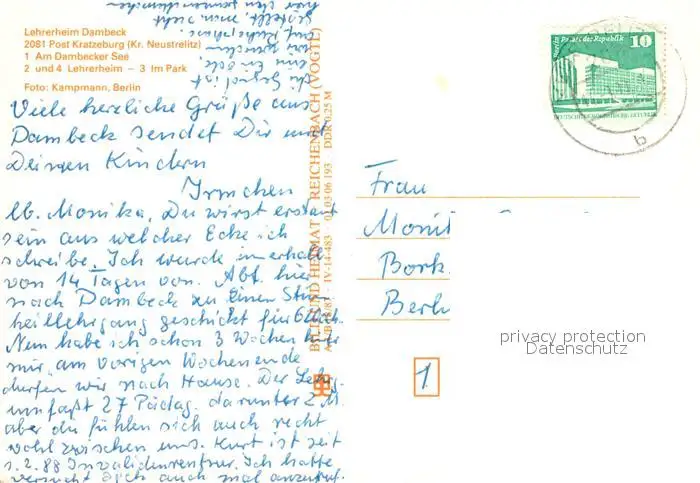 Lehrerheim Dambeck
2081 Post Kratzeburg (Kr. Neustrelitz)
1 Am Dambecker See
2 und 4 Lehrerheim – 3 Im Park
Foto: Kampmann, Berlin
Viele herzliche Grüße aus
Dambeck sendet Dir und
Deinen Kindern
Irmchen
lb. Monika, Du wirst erstaunt
sein aus welcher Ecke ich
schreibe. Ich wurde innerhalb
von 14 Tagen von. Abt. hier
nach Dambeck zu einem
geschickt für 6 Woch.
Nun habe ich schon 3 Wochen hinter
mir, am vorigen Wochenende
durften wir nach Hause. Der Lehrg.
umfaßt 27 Pädag. darunter 2 M.
aber die fühlen sich auch recht
wohl zwischen uns. Kurt ist seit
1.2.88 Invalidenrentner. Ich hatte
versucht Dich auch mal anzurufen
BILD UND HEIMAT REICHENBACH (VOGTL)
IV-14-483 01 03 06 193 DDR 0,25 M
Berlin, Palast der Republik 10
DEUTSCHE DEMOKRATISCHE REPUBLIK
b
Frau
Moni
Bork
Berl
1
privacy protection
Datenschutz